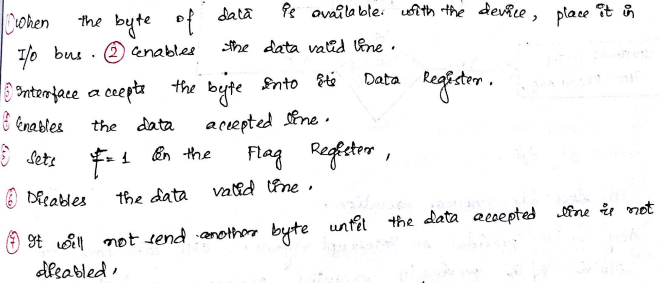 ① When the byte of data is available with the device, place it in
I/o bus. ② Enables the data valid line.
③ Interface accepts the byte into its Data Register.
④ Enables the data accepted line.
⑤ Sets F=1 in the Flag Register,
⑥ Disables the data valid line.
⑦ It will not send another byte until the data accepted line is not
disabled,